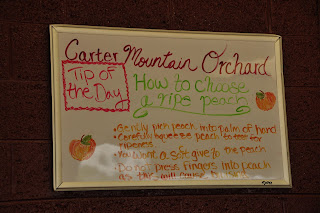 Carter Mountain Orchard
Tip of
the Day
How to choose
a ripe peach
• Gently pick peach into palm of hand
• Carefully squeeze peach to test for
ripeness
• You want a soft give to the peach
• Do not press fingers into peach
as this will cause bruising